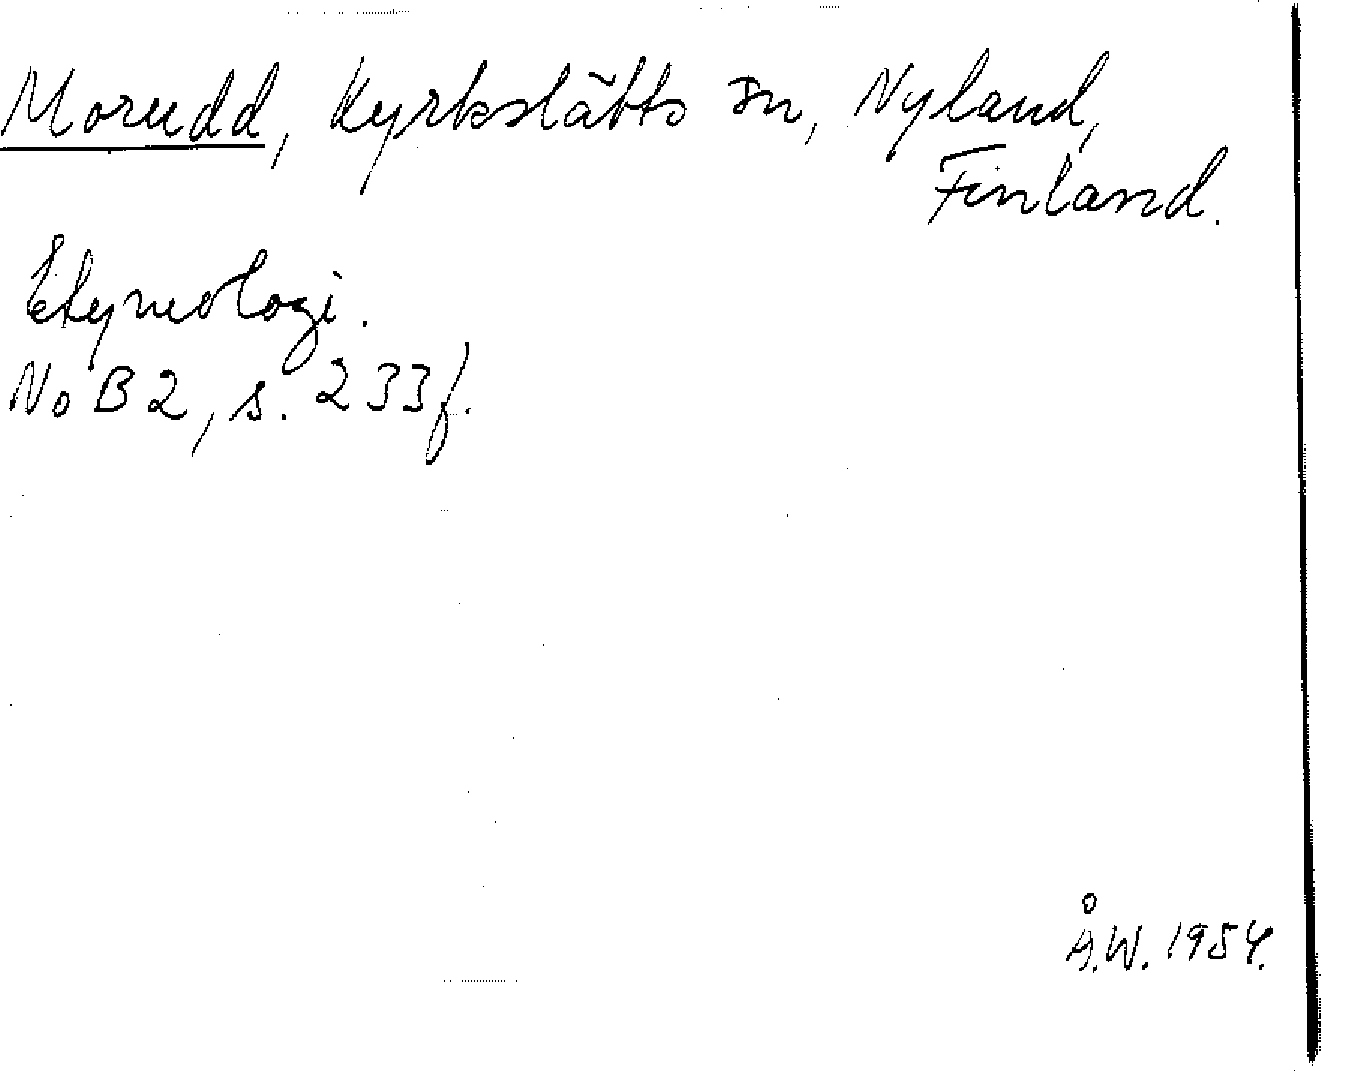 Morudd, Kyrkslätts sn, Nyland,
Finland.
Etymologi.
NoB 2, s. 233 f.
Å.W. 1954.